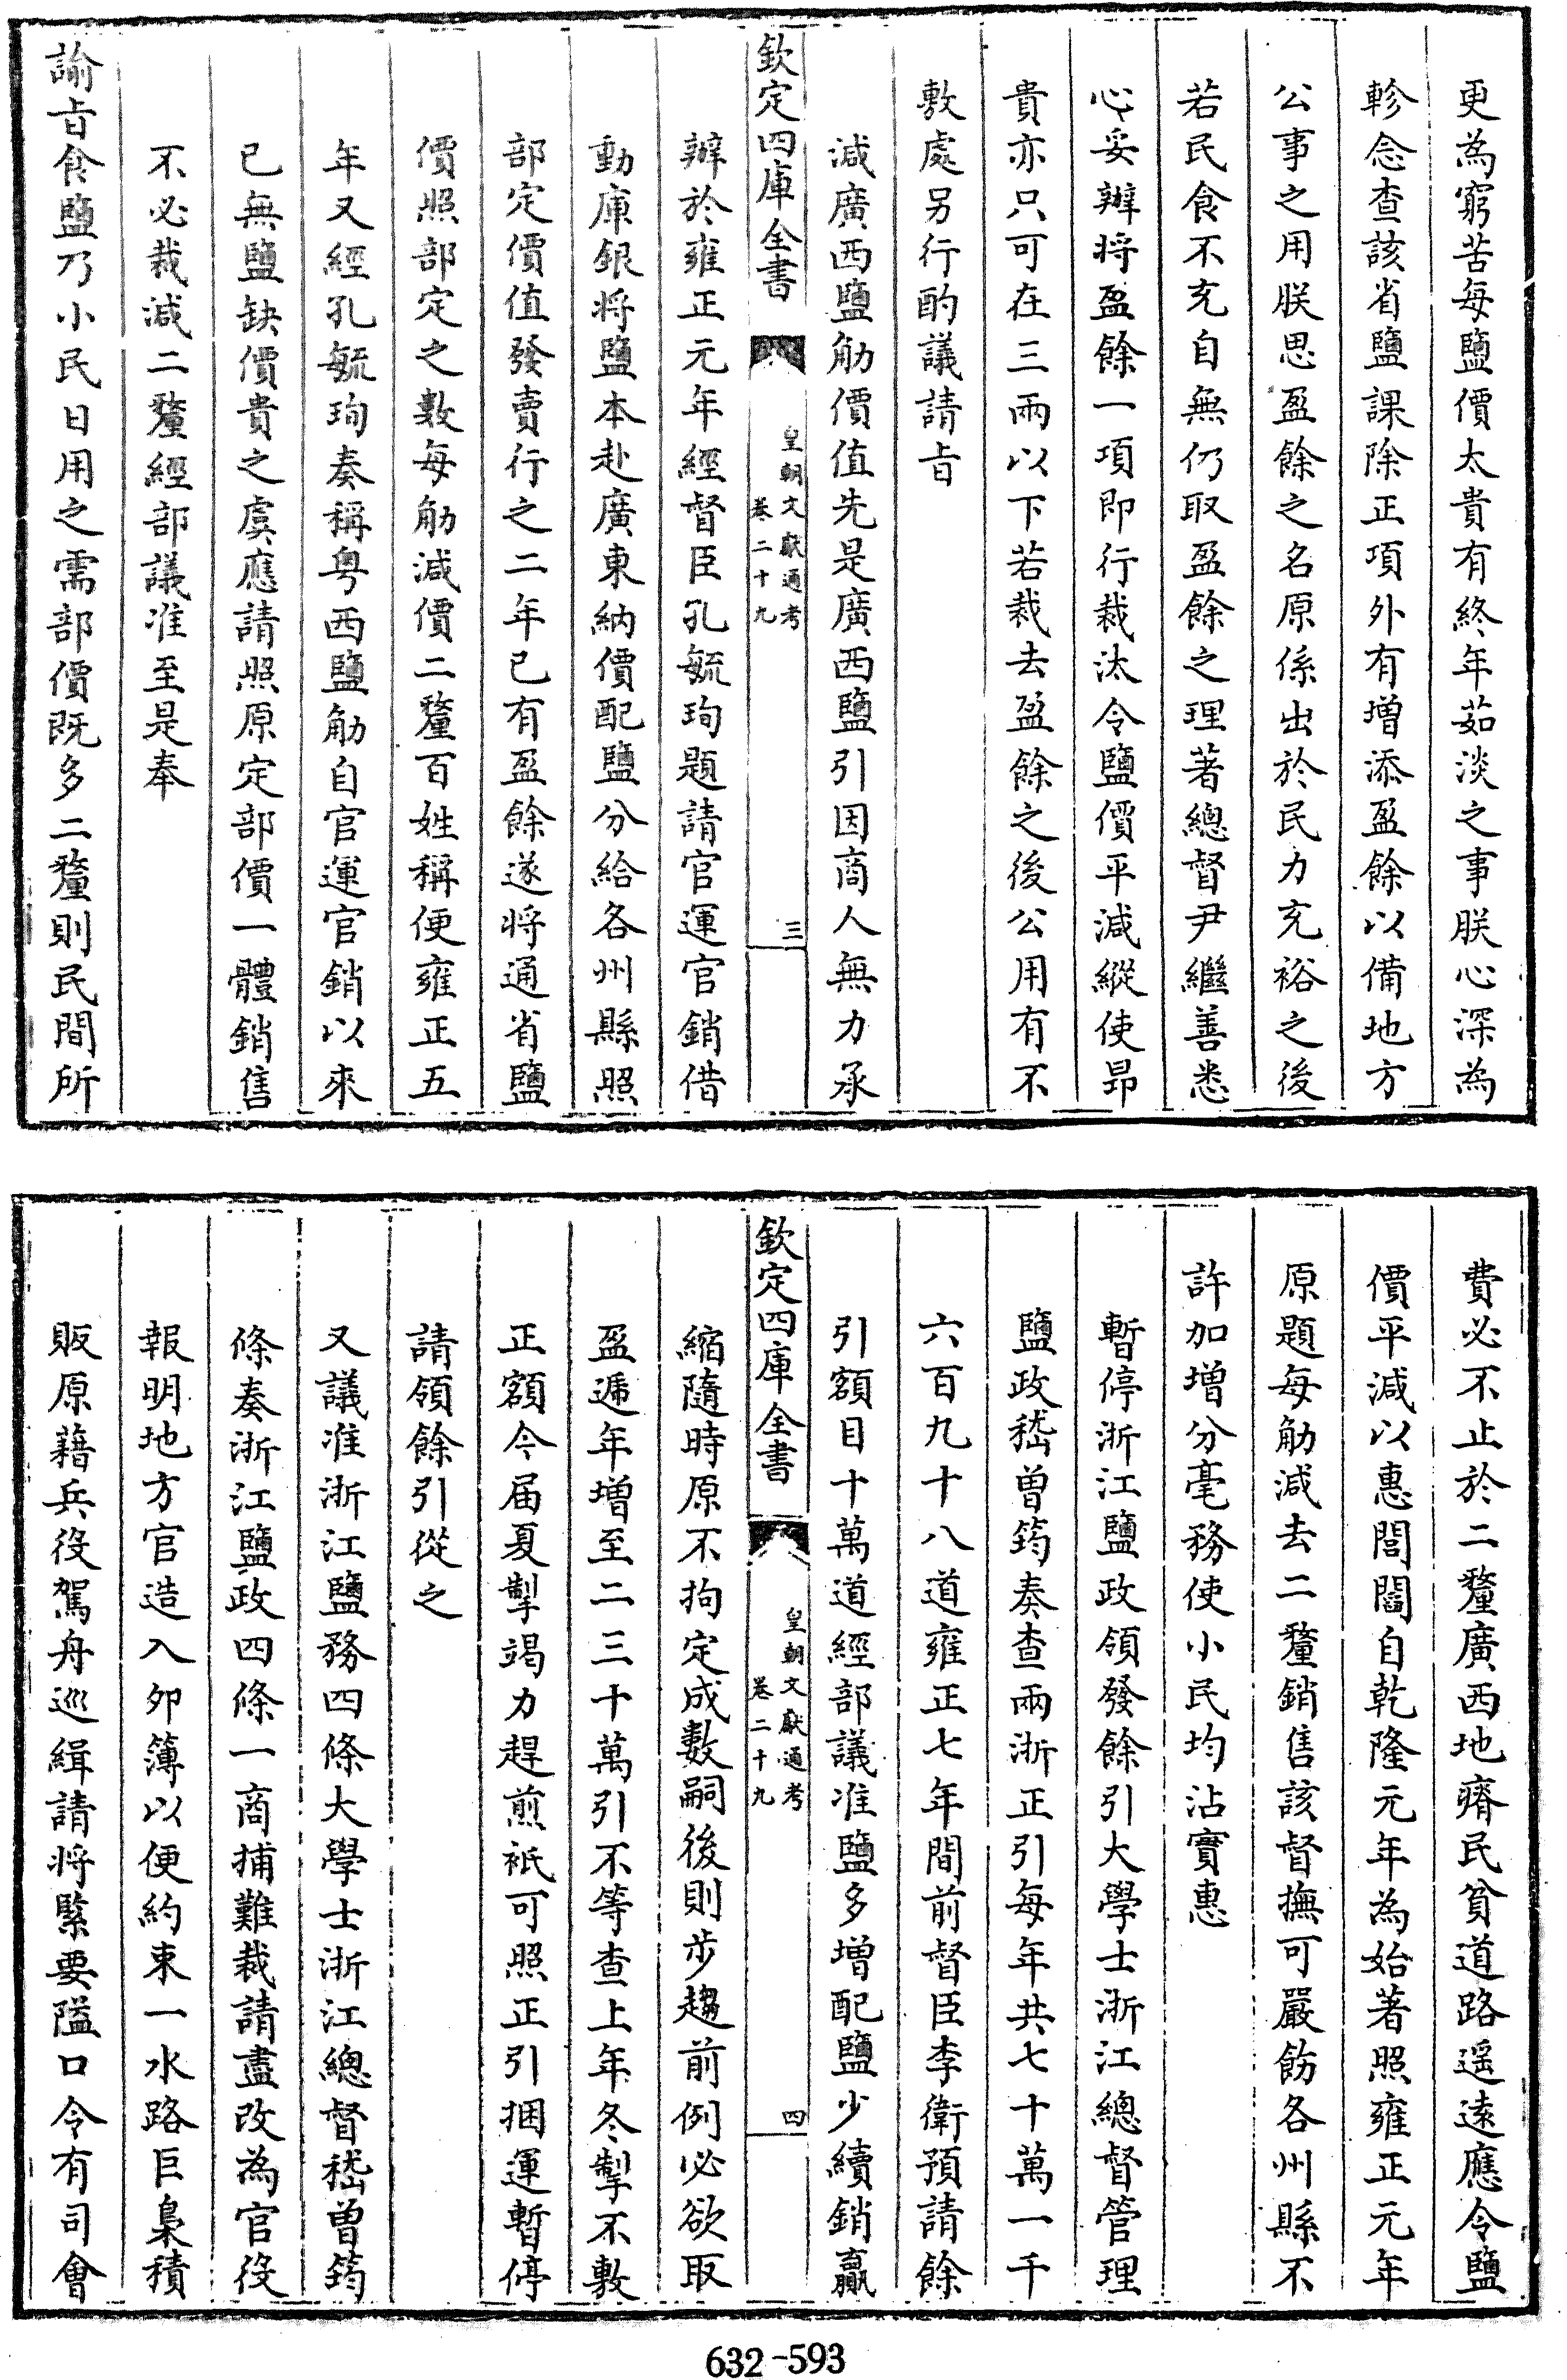 更為窮苦每鹽價太貴有終年茹淡之事朕心深為
軫念查該省鹽課除正項外有增添盈餘以備地方
公事之用朕思盈餘之名原係出於民力充裕之後
若民食不充自無仍取盈餘之理著總督尹繼善悉
心妥辦将盈餘一項即行裁汰令鹽價平減縱使昻
貴亦只可在三兩以下若裁去盈餘之後公用有不
敷處另行酌議請㫖
減廣西鹽觔價值先是廣西鹽引因商人無力承
欽定四庫全書
皇朝文獻通考
卷二十九
三
辦於雍正元年經督臣孔毓珣題請官運官銷借
動庫銀将鹽本赴廣東納價配鹽分給各州縣照
部定價值發賣行之二年已有盈餘遂将通省鹽
價照部定之數每觔減價二釐百姓稱便雍正五
年又經孔毓珣奏稱粤西鹽觔自官運官銷以來
已無鹽缺價貴之虞應請照原定部價一體銷售
不必裁減二釐經部議准至是奉
諭㫖食鹽乃小民日用之需部價既多二釐則民間所
費必不止於二釐廣西地瘠民貧道路遥逺應令鹽
價平減以惠閭閻自乾隆元年為始著照雍正元年
原題每觔減去二釐銷售該督撫可嚴飭各州縣不
許加增分毫務使小民均沾實惠
暫停浙江鹽政領發餘引大學士浙江總督管理
鹽政嵇曾筠奏查兩浙正引每年共七十萬一千
六百九十八道雍正七年間前督臣李衛預請餘
引額目十萬道經部議准鹽多增配鹽少續銷贏
欽定四庫全書
皇朝文獻通考
卷二十九
四
縮隨時原不拘定成數嗣後則步趨前例必欲取
盈遞年增至二三十萬引不等查上年冬掣不敷
正額今届夏掣竭力趕煎祇可照正引捆運暫停
請領餘引從之
又議准浙江鹽務四條大學士浙江總督嵇曾筠
條奏浙江鹽政四條一商捕難裁請盡改為官役
報明地方官造入夘簿以便約束一水路巨梟積
販原藉兵役駕舟巡緝請将緊要隘口令有司會
632-593